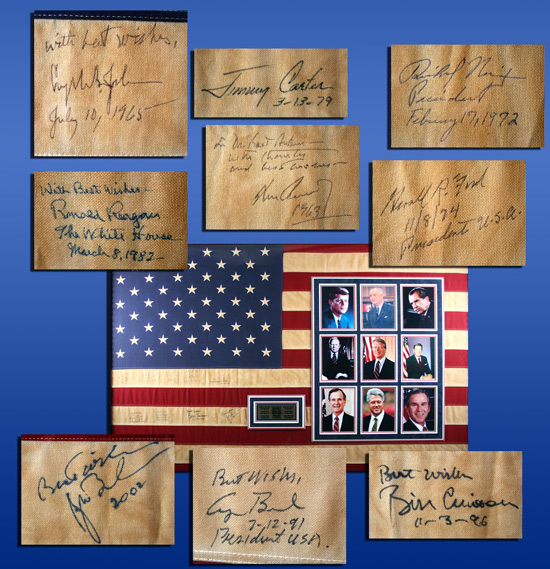 With best wishes,
Lyndon B. Johnson
July 10, 1965
Jimmy Carter
3-13-79
Richard Nixon
President
February 17, 1972
To
with thanks
and best wishes—
1963
With Best Wishes—
Ronald Reagan
The White House
March 8, 1982
Gerald R. Ford
11/8/74
President U.S.A.
Best wishes
2002
Best Wishes,
7-12-91
President USA.
Best Wishes
Bill Clinton
11-3-96